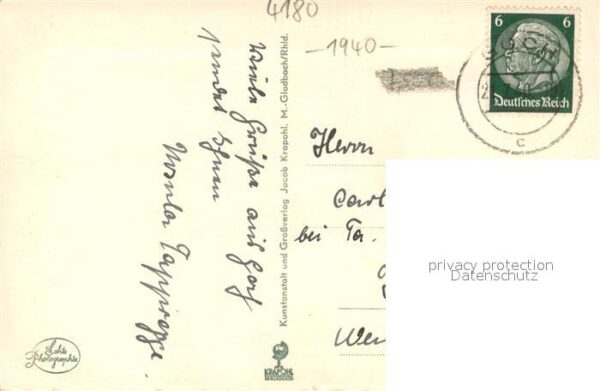 4180
-1940-
6 6
Deutsches Reich
GOCH
c
Viele Grüße aus Goch
sendet Ihnen
Ursula
Kunstanstalt und Großverlag Jacob Krapohl, M.-Gladbach/Rhld.
Herrn
Carl
bei Fa.
privacy protection
Datenschutz
Echte
Photographie
KRAPOHL